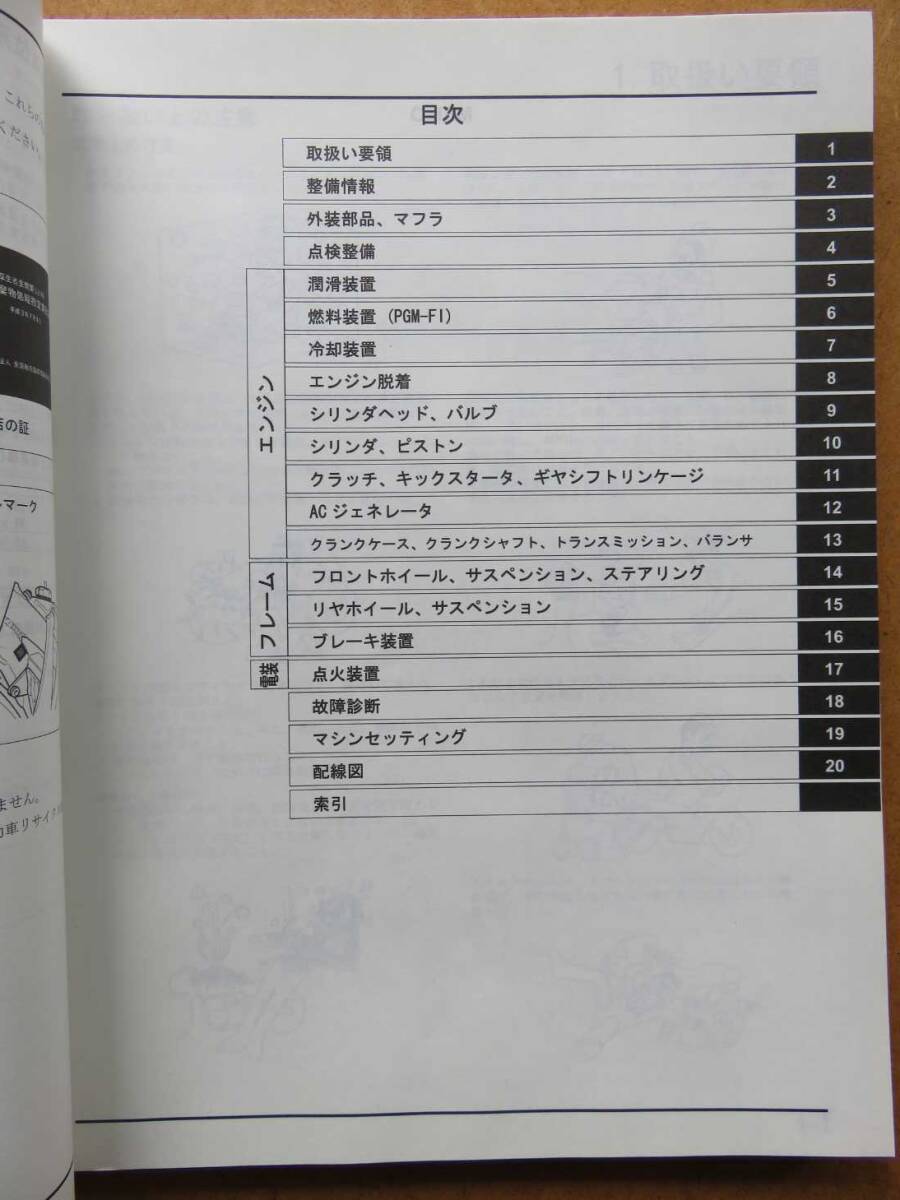 これらの
ください。
店の証
マーク
ません。
車リサイク
1. 取扱い要領
目次
取扱い要領 1
整備情報 2
外装部品、マフラ 3
点検整備 4
エンジン
潤滑装置 5
燃料装置 (PGM-FI) 6
冷却装置 7
エンジン脱着 8
シリンダヘッド、バルブ 9
シリンダ、ピストン 10
クラッチ、キックスタータ、ギヤシフトリンケージ 11
ACジェネレータ 12
クランクケース、クランクシャフト、トランスミッション、バランサ 13
フレーム
フロントホイール、サスペンション、ステアリング 14
リヤホイール、サスペンション 15
ブレーキ装置 16
電装
点火装置 17
故障診断 18
マシンセッティング 19
配線図 20
索引